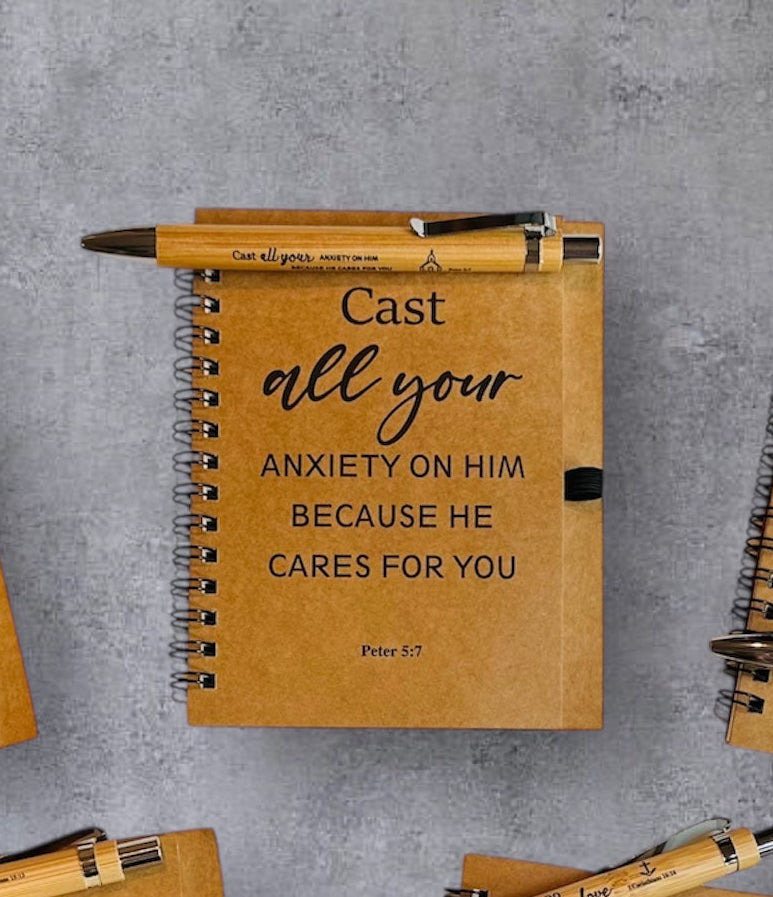 Cast all your ANXIETY ON HIM
BECAUSE HE CARES FOR YOU
Peter 5:7
Cast
all your
ANXIETY ON HIM
BECAUSE HE
CARES FOR YOU
Peter 5:7
love
1 Corinthians 16:14